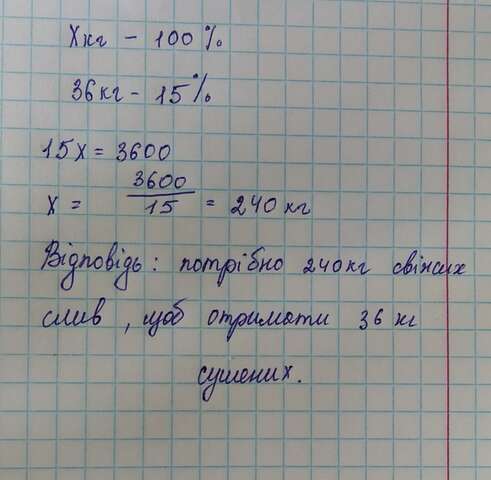 Xкг - 100%
36кг - 15%
15X = 3600
X = 3600/15 = 240 кг
Відповідь: потрібно 240кг свіжих
слив, щоб отримати 36 кг
сушених.